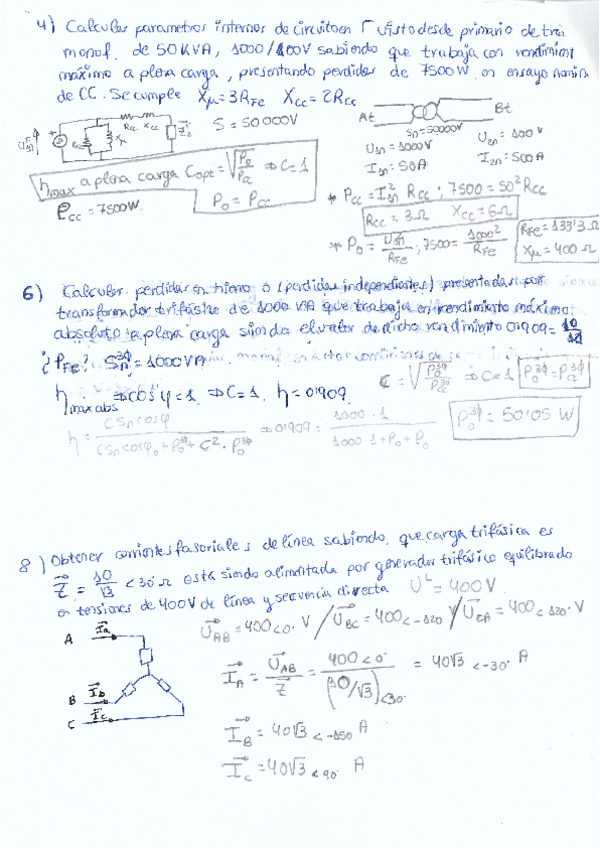 4) Calcular parametros internos de circuito en Γ visto desde primario de trai
monof. de 50KVA, 1000/100V sabiendo que trabaja con rendimient
máximo a plena carga, presentando perdidas de 7500W en ensayo nomin
de CC. Se cumple Xμ=3RFe Xcc=2Rcc
S = 50000V
Rcc Xcc
Xμ
At Bt
Sn=50000V
U1n=1000V
I1n=50A
U2n=100V
I2n=500A
ηmax a plena carga Copt=√(Po/Pcc) ⇒ C=1
Po = Pcc
Pcc = 7500W.
* Pcc = I1n² Rcc ; 7500 = 50² Rcc
Rcc = 3Ω Xcc = 6Ω
* Po = U1n²/RFe ; 7500 = 1000²/RFe
RFe = 133'3 Ω
Xμ = 400 Ω
6) Calcular perdidas en hierro o (perdidas independientes) presentadas por
transformador trifásico de 1000 VA que trabaja en rendimiento máximo
absoluto a plena carga siendo el valor de dicho rendimiento 0'909 = 10/11
¿PFe? Sn3ϕ = 1000VA
C = √(Po3ϕ/Pcc3ϕ) ⇒ C=1 Po3ϕ=Pcc3ϕ
ηmax abs ⇒ cosφ = 1 ⇒ C=1, η = 0'909
η = CSn cosφ / (CSn cosφ + Po3ϕ + C²·Po3ϕ) ⇒ 0'909 = 1000·1 / (1000·1 + Po + Po)
Po3ϕ = 50'05 W
8) Obtener corrientes fasoriales de línea sabiendo, que carga trifásica es
Z⃗ = 10/√3 <30° Ω está siendo alimentada por generador trifásico equilibrado
en tensiones de 400V de línea y secuencia directa UL = 400V
U⃗AB = 400<0° V / U⃗BC = 400<-120 V / U⃗CA = 400<120° V
A I⃗a
B I⃗b
C I⃗c
I⃗A = U⃗AB/Z⃗ = 400<0° / (10/√3)<30° = 40√3 <-30° A
I⃗B = 40√3 <-150 A
I⃗C = 40√3 <90° A